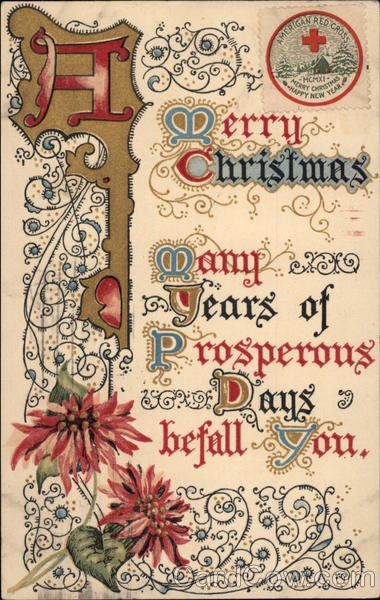 A
Merry
Christmas
AMERICAN RED CROSS
MCMXI
MERRY CHRISTMAS
HAPPY NEW YEAR
Many
Years of
Prosperous
Days
befall You.
CardCow.com